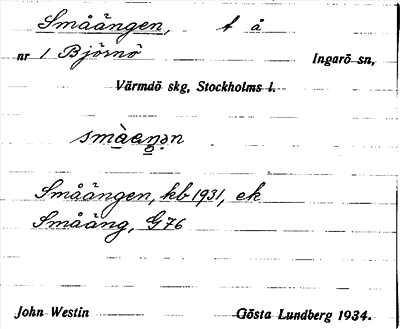 Småängen, t å
nr 1 Björnö Ingarö sn,
Värmdö skg, Stockholms l.
Småängen, kb 1931, ek
Småäng, G76
John Westin Gösta Lundberg 1934.